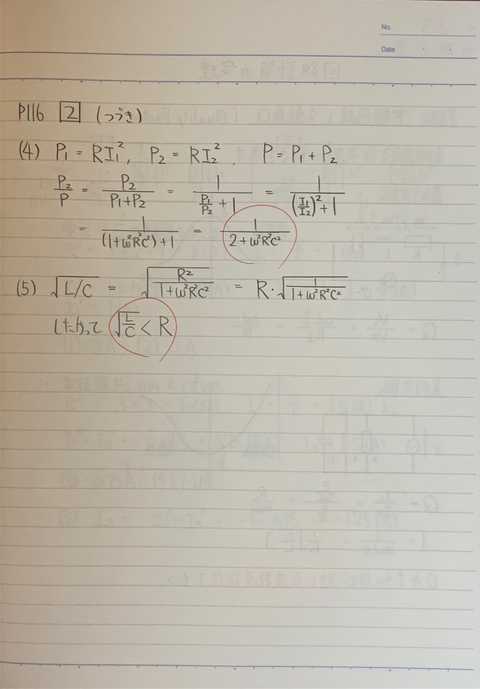 No.
Date
P116 2 (つづき)
(4) P₁ = RI₁², P₂ = RI₂², P = P₁ + P₂
P₂/P = P₂/(P₁+P₂) = 1/(P₁/P₂ + 1) = 1/((I₁/I₂)² + 1)
= 1/((1+ω²R²C²)+1) = 1/(2+ω²R²C²)
(5) √(L/C) = √(R²/(1+ω²R²C²)) = R·√(1/(1+ω²R²C²))
したがって √(L/C) < R